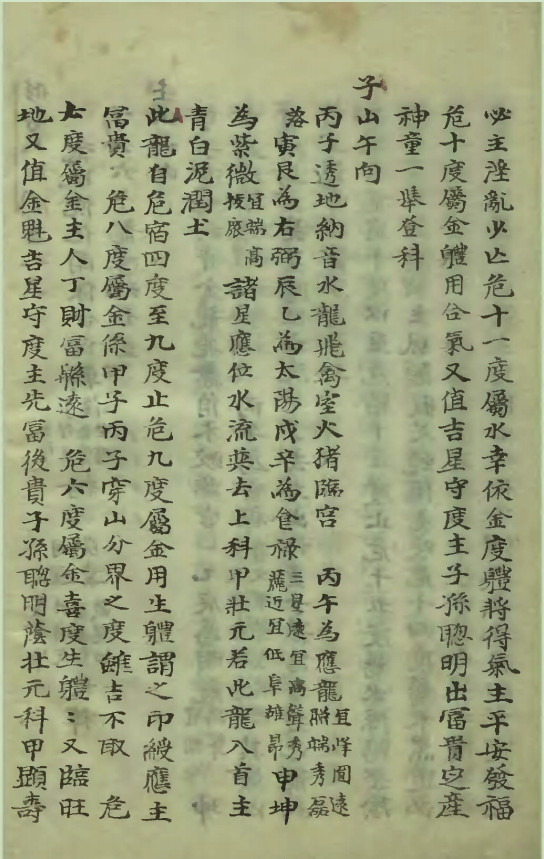 必主淫亂少亡危十一度屬水幸依金度軆將得氣主平安發福
危十度屬金軆用合氣又值吉星守度主子孫聰明出富貴定產
神童一舉登科
子山午向
丙子透地納音水龍飛禽室火猪臨宮 丙午為應龍宜峰圍遠勝端秀磊
落寅艮為右弼辰乙為太陽戌辛為食祿三星遠宜高聳秀麗近宜低阜雄昂申坤
為紫微宜端高諸星應位水流巽去上科甲壯元若此龍入首主
青白泥潤土
此龍自危宿四度至九度止危九度屬金用生軆謂之印綬應主
富貴 危八度屬金係甲子丙子穿山分界之度雖吉不取 危
七度屬金主人丁財富綿遠 危六度屬金喜度生軆〻又臨旺
地又值金魁吉星守度主先富後貴子孫聰明蔭壯元科甲顯壽